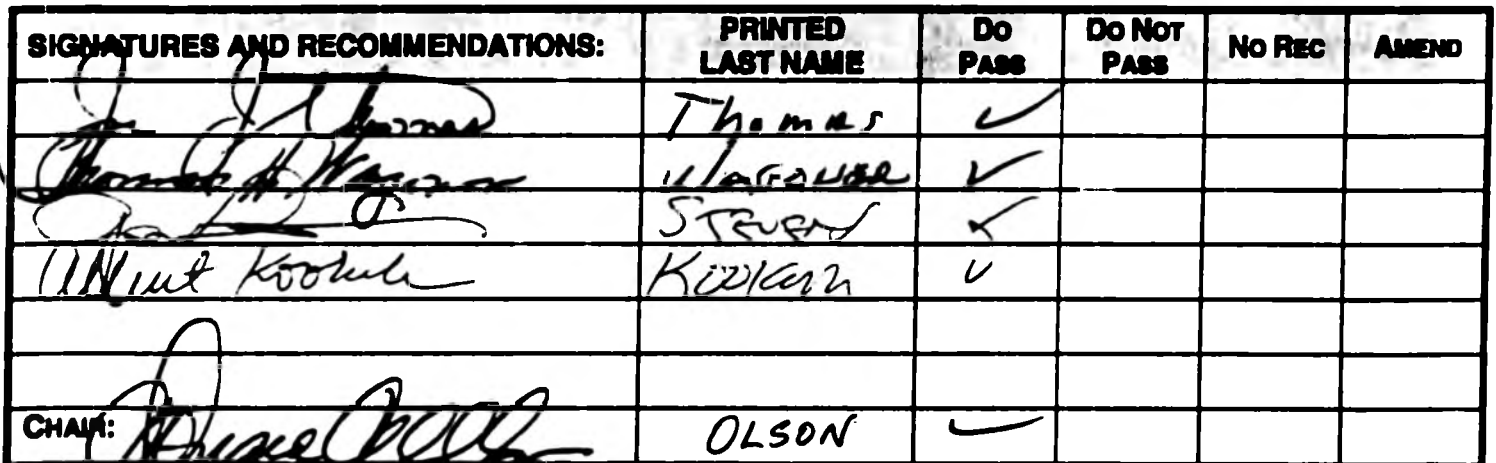 SIGNATURES AND RECOMMENDATIONS: PRINTED LAST NAME DO PASS DO NOT PASS NO REC AMEND
Thomas Thomas ✓
Thomas H. Wagoner Wagoner ✓
STEVENS ✓
Kookesh Kookesh ✓
CHAIR: OLSON ✓